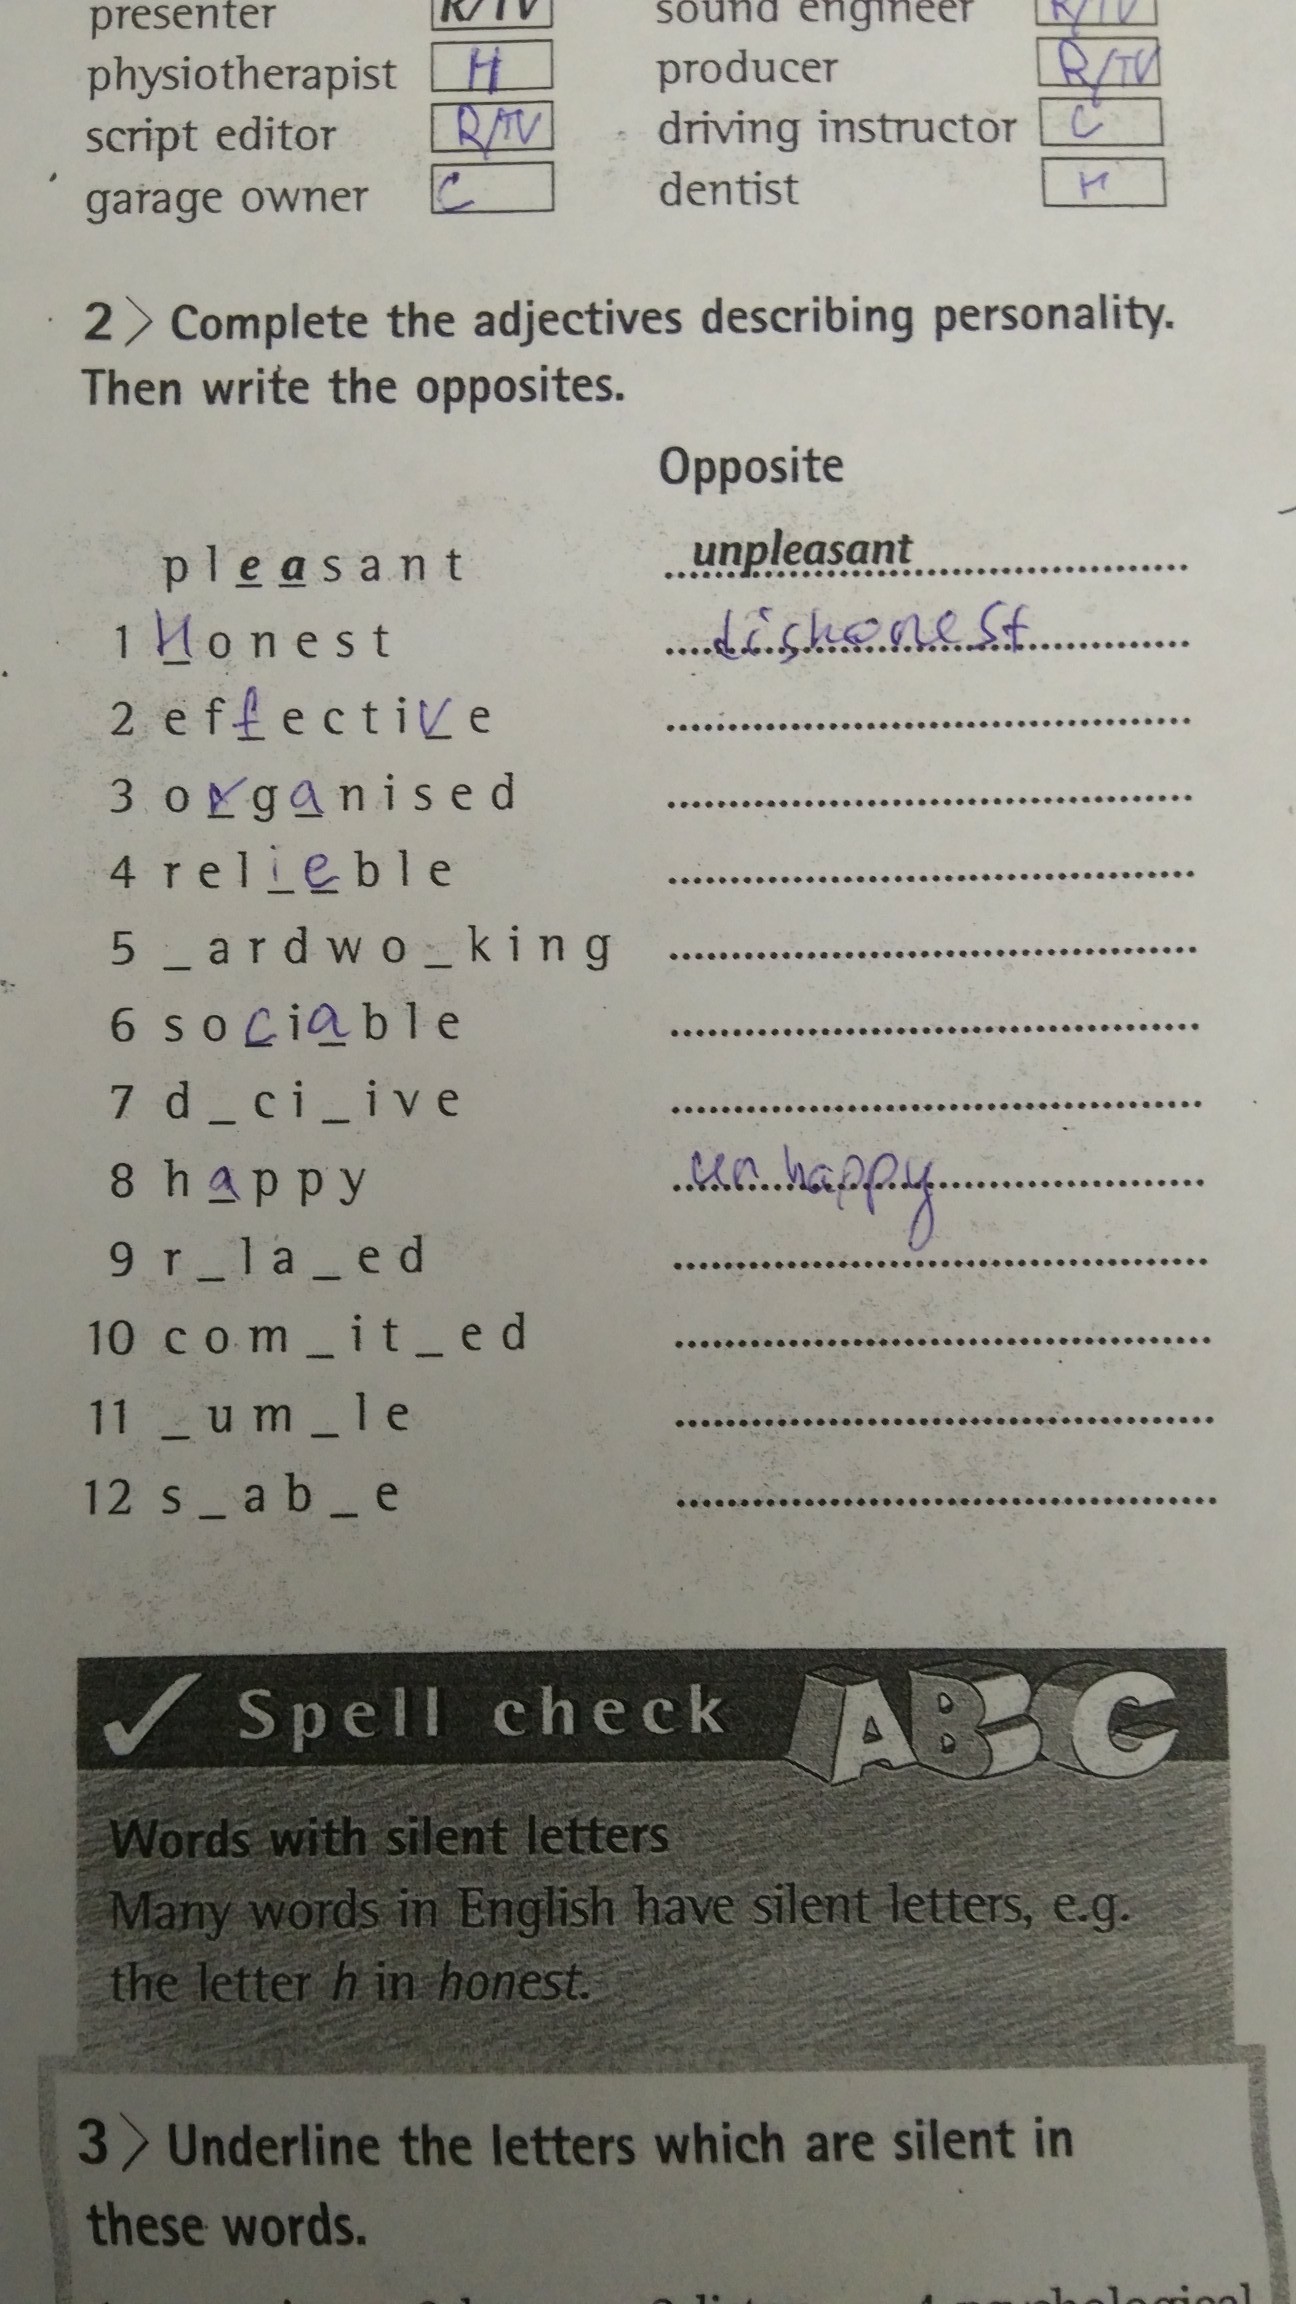 presenter R/TV sound engineer R/TV
physiotherapist H producer R/TV
script editor R/TV driving instructor C
garage owner C dentist H
2 > Complete the adjectives describing personality.
Then write the opposites.
Opposite
pleasant unpleasant
1 Honest dishonest
2 effective
3 organised
4 relieble
5 _ardwo_king
6 sociable
7 d_ci_ive
8 happy unhappy
9 r_la_ed
10 com_it_ed
11 _um_le
12 s_ab_e
✓ Spell check ABC
Words with silent letters
Many words in English have silent letters, e.g.
the letter h in honest.
3 > Underline the letters which are silent in
these words.
4 psychological